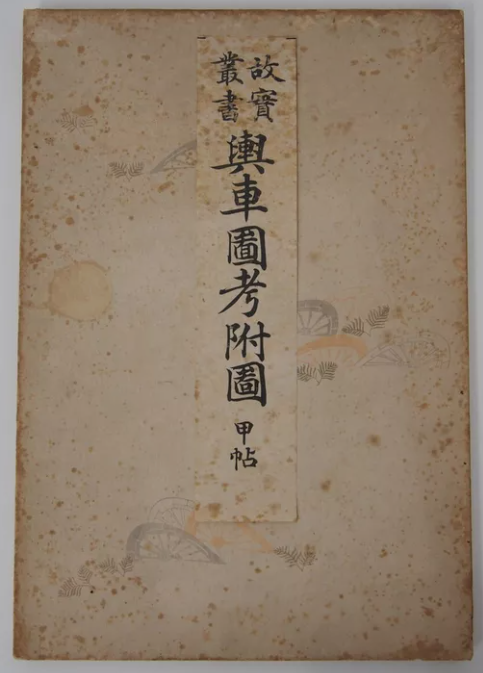 故實
叢書
輿車圖考附圖
甲帖